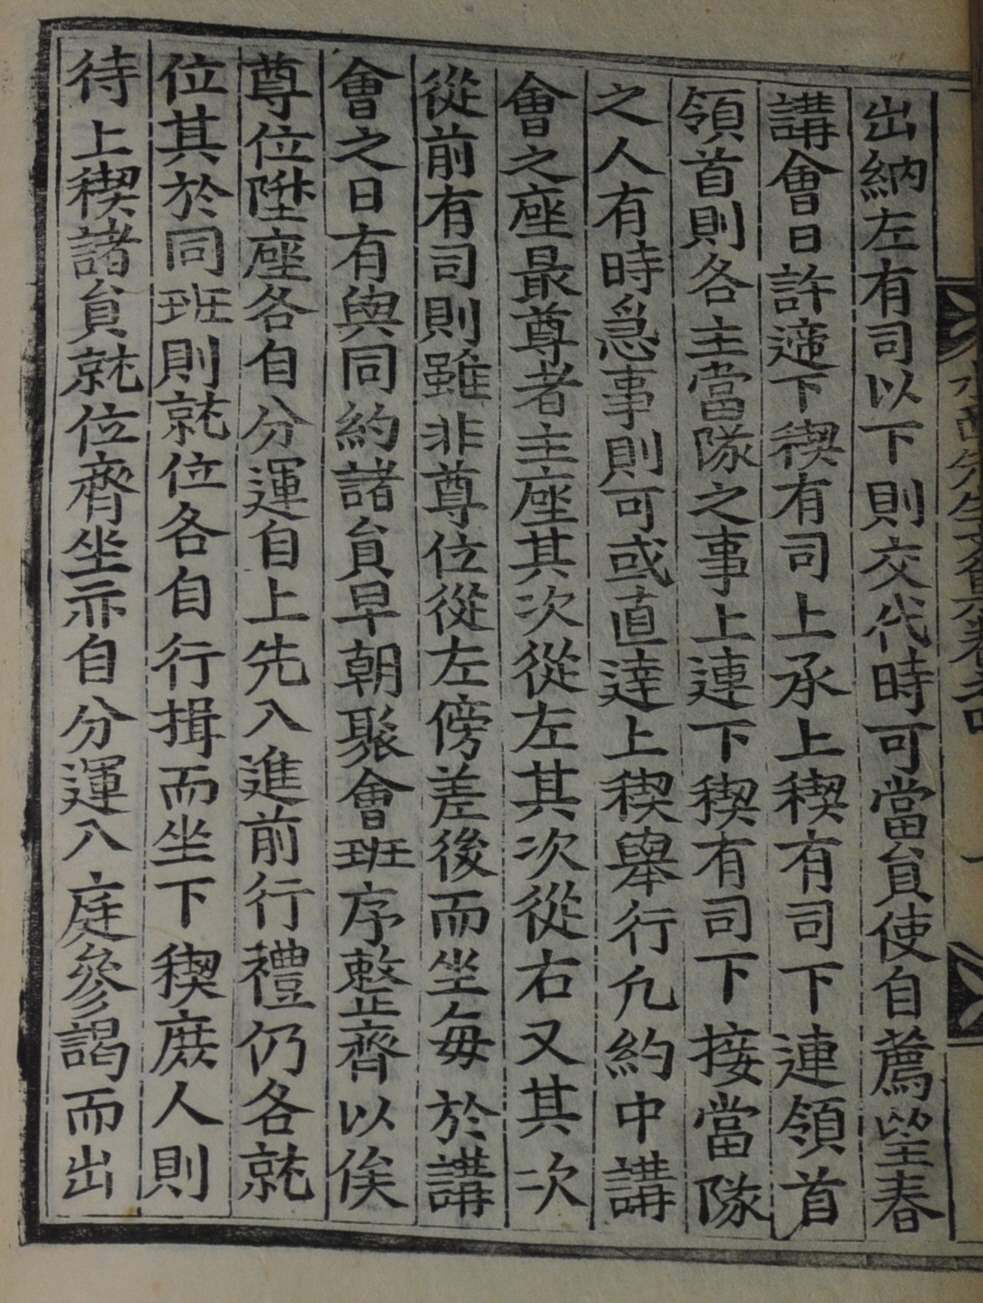 出納左有司以下則交代時可當員使自薦望春
講會日許遞下稧有司上承上稧有司下連領首
領首則各主當隊之事上連下稧有司下接當隊
之人有時急事則可或直達上稧擧行凢約中講
會之座最尊者主座其次從左其次從右又其次
從前有司則雖非尊位從左傍差後而坐每於講
會之日有與同約諸員早朝聚會班序整齊以俟
尊位陞座各自分運自上先入進前行禮仍各就
位其於同班則就位各自行揖而坐下稧庶人則
待上稧諸員就位齊坐亦自分運入庭參謁而出
先生文集卷之四